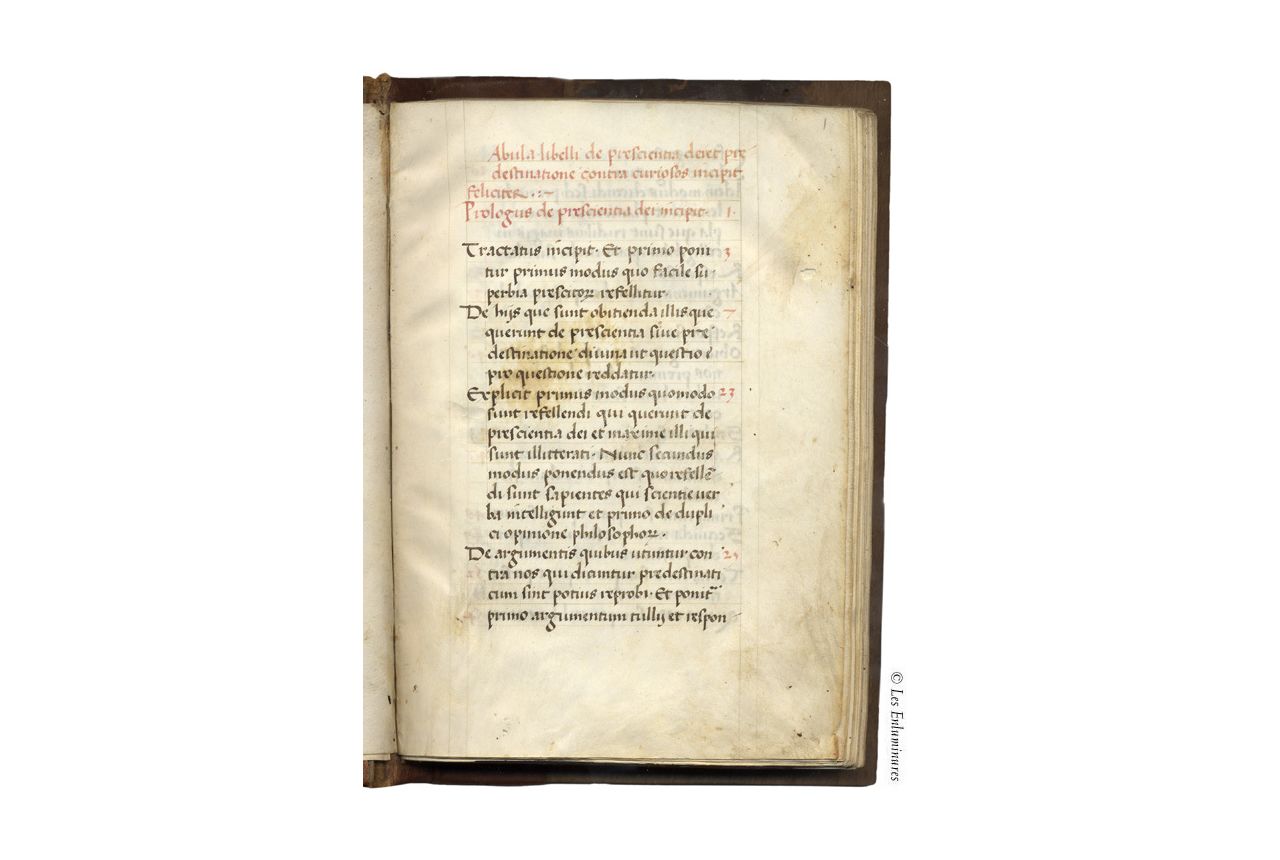 1
Abula libelli de prescientia dei et pre
destinatione contra curiosos incipit
feliciter
Prologus de prescientia dei incipit. 1.
Tractatus incipit. Et primo poni 3
tur primus modus quo facile su
perbia prescitoꝝ refellitur.
De hijs que sunt obitienda illis que 7
querunt de prescientia siue pre
destinatione diuina ut questio
pro questione reddatur.
Explicit primus modus quomodo 23
sunt refellendi qui querunt de
prescientia dei et maxime illi qui
sunt illitterati. Nunc secundus
modus ponendus est quo refellē
di sunt sapientes qui scientie ver
ba intelligunt et primo de dupli
ci opinione philosophoꝝ.
De argumentis quibus utuntur con
tra nos qui dicuntur predestinati
cum sint potius reprobi. Et ponit
primo argumentum tullij et respon
© Les Enluminures